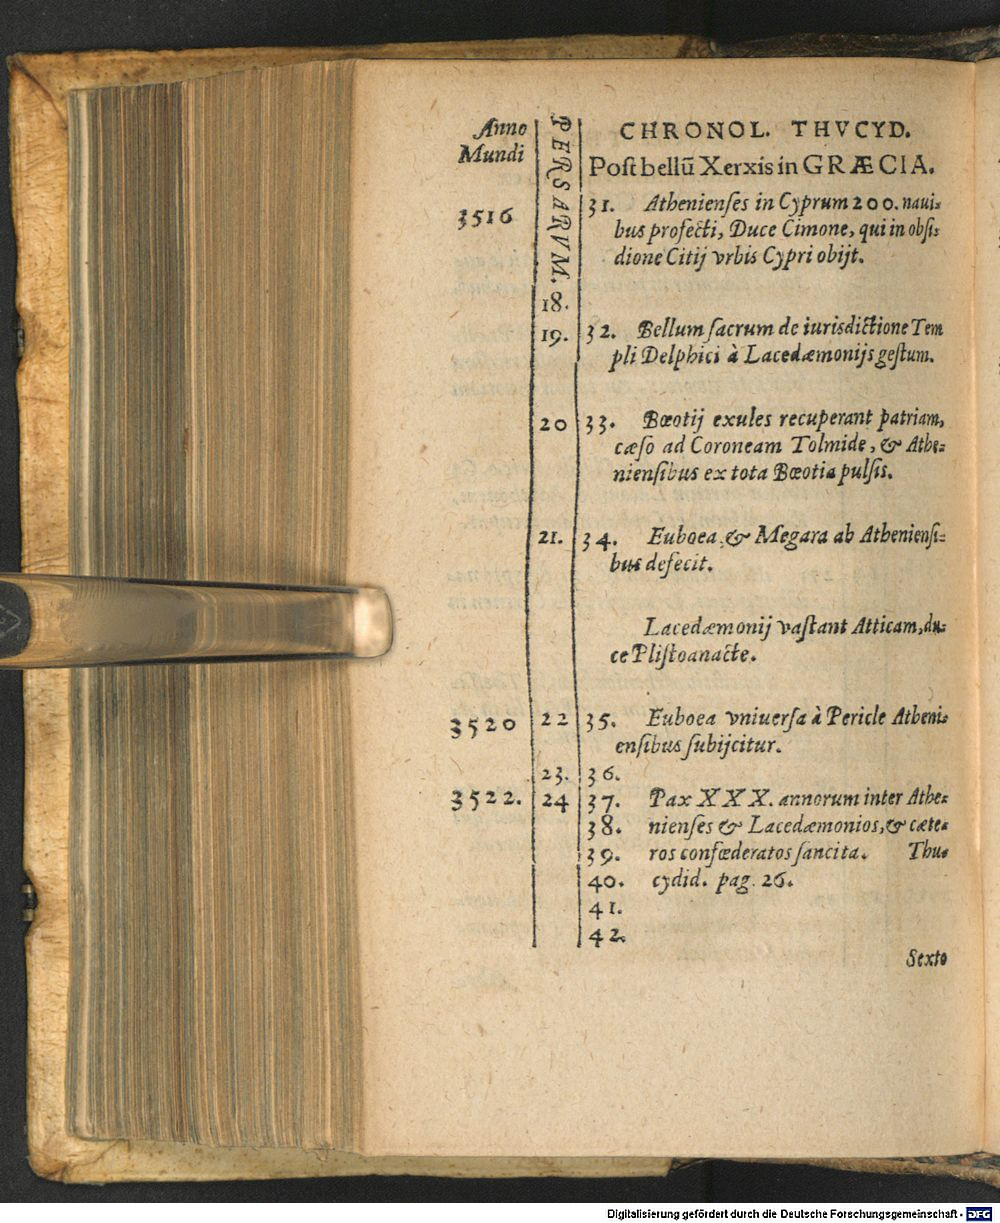 Anno
Mundi
PERSARVM.
CHRONOL. THVCYD.
Poſt bellū Xerxis in GRÆCIA.
3516 18. 31. Athenienſes in Cyprum 200. naui-
bus profecti, Duce Cimone, qui in obſi-
dione Citij vrbis Cypri obijt.
19. 32. Bellum ſacrum de iurisdictione Tem
pli Delphici à Lacedæmonijs geſtum.
20 33. Bœotij exules recuperant patriam,
cæſo ad Coroneam Tolmide, & Athe-
nienſibus ex tota Bœotia pulſis.
21. 34. Euboea & Megara ab Athenienſi-
bus defecit.
Lacedæmonij vaſtant Atticam, du-
ce Pliſtoanacte.
3520 22 35. Euboea vniuerſa à Pericle Atheni-
enſibus ſubijcitur.
23. 36.
3522. 24 37. Pax XXX. annorum inter Athe-
38. nienſes & Lacedæmonios, & cæte-
39. ros confœderatos ſancita. Thu-
40. cydid. pag. 26.
41.
42.
Sexto
Digitalisierung gefördert durch die Deutsche Forschungsgemeinschaft - DFG